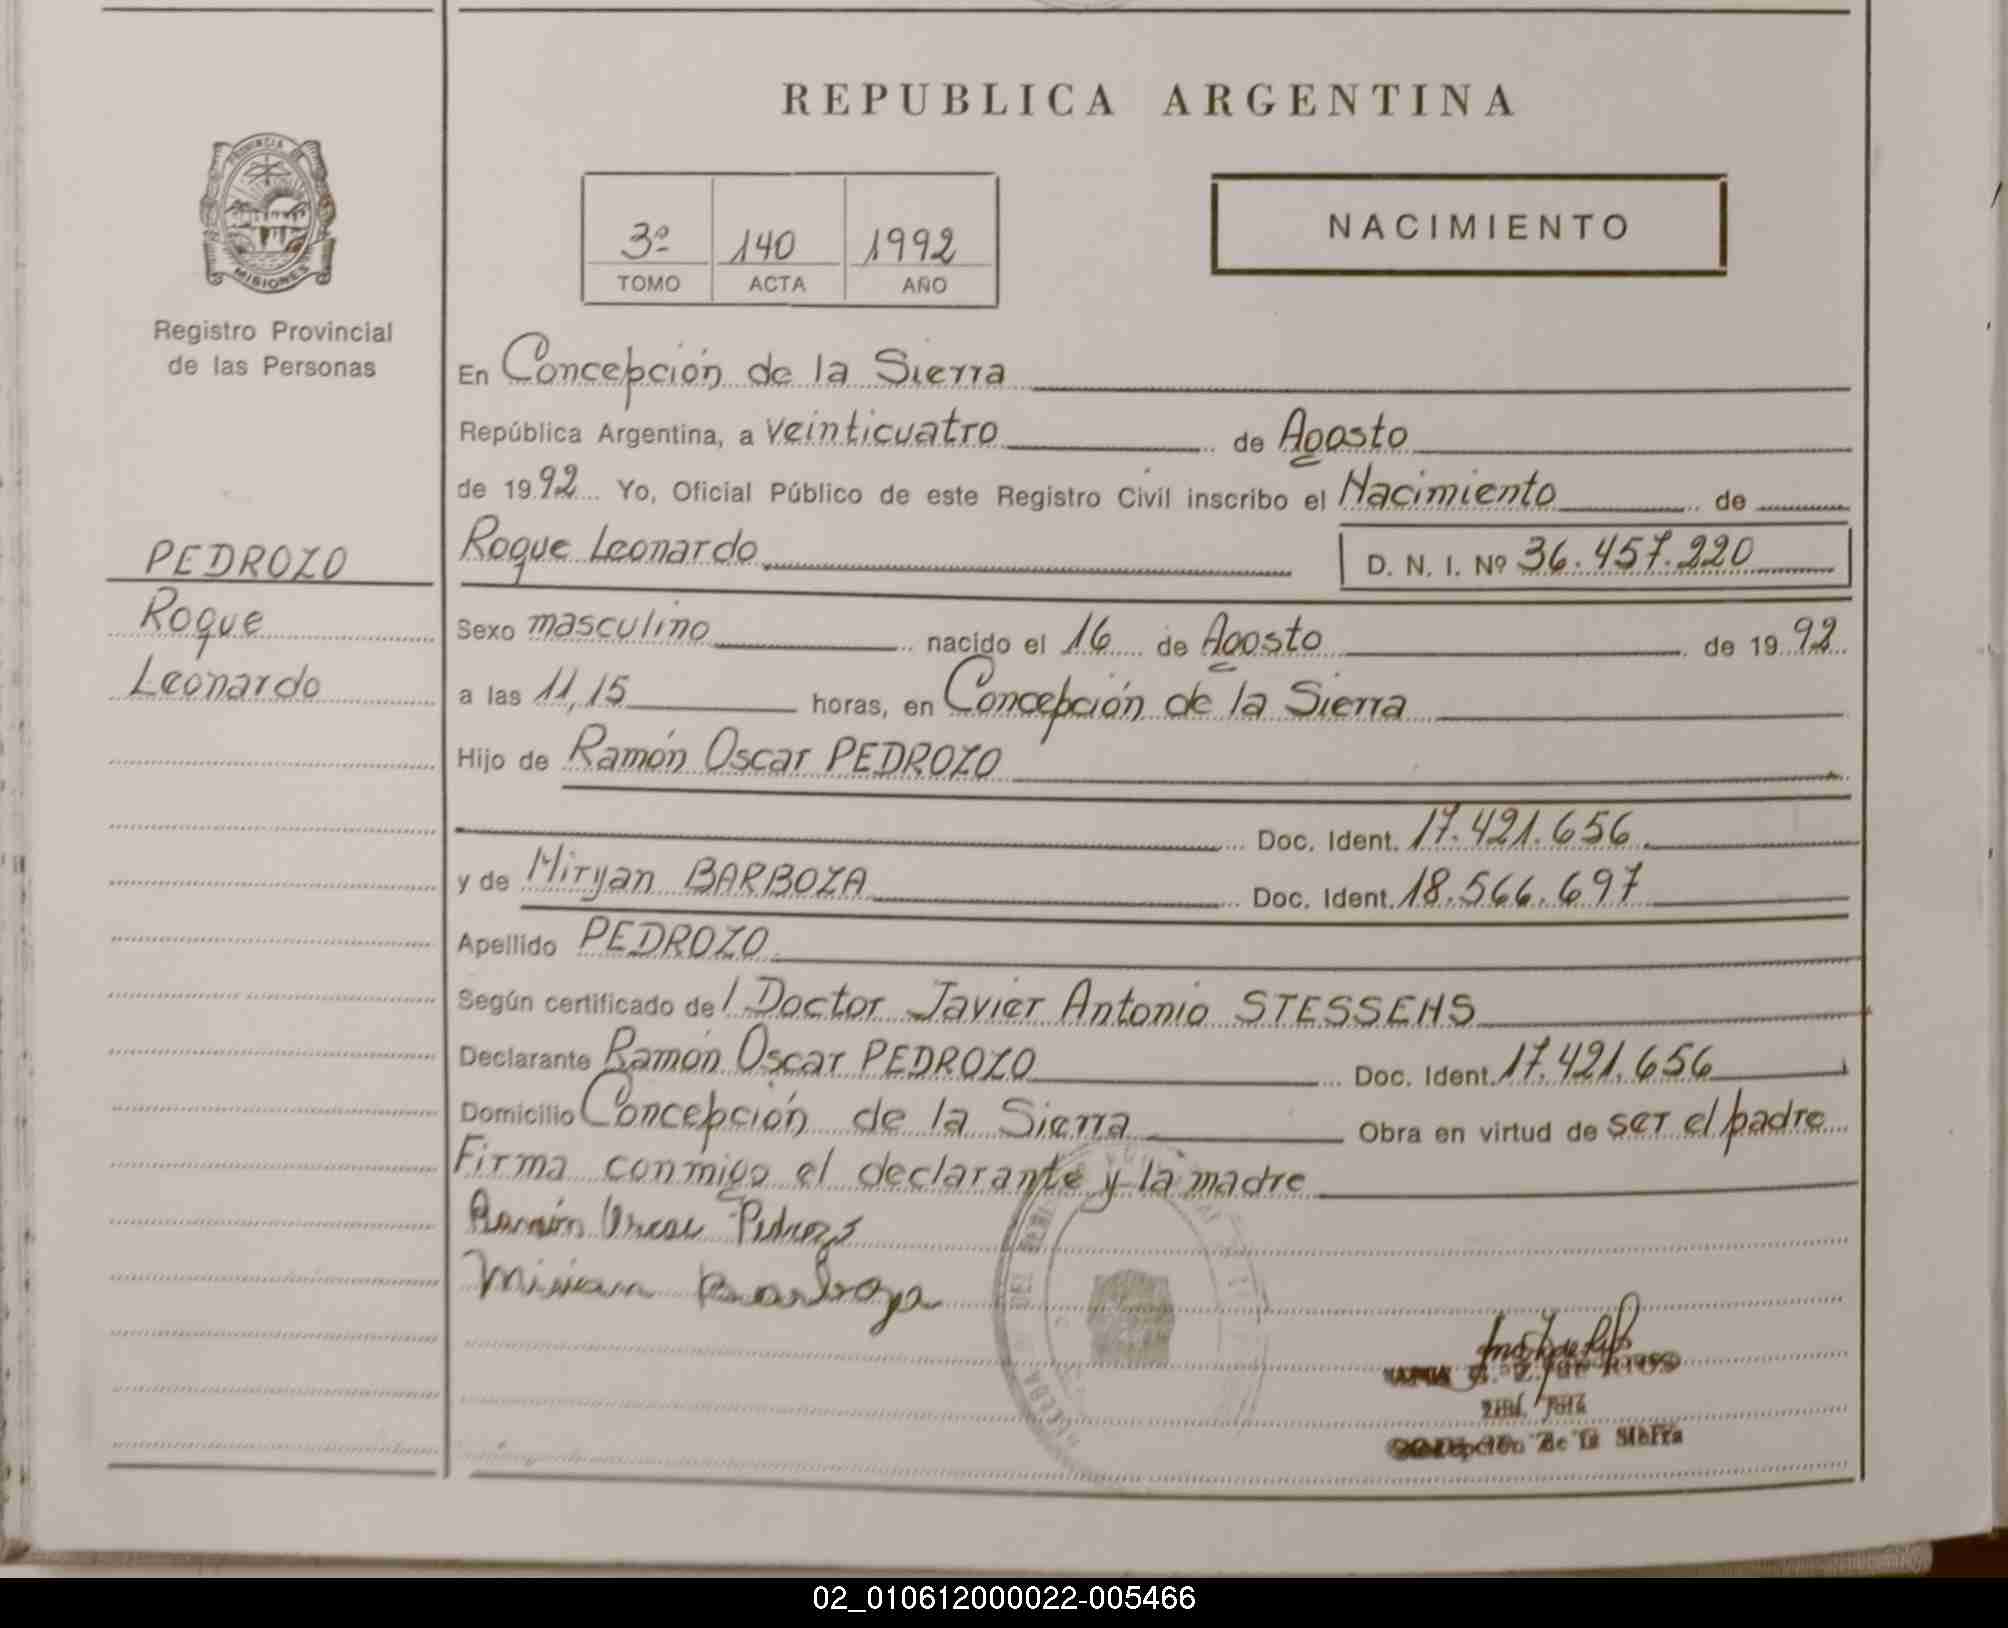 REPUBLICA ARGENTINA
PROVINCIA DE
MISIONES
Registro Provincial
de las Personas
3º 140 1992
TOMO ACTA AÑO
NACIMIENTO
En Concepción de la Sierra
República Argentina, a veinticuatro de Agosto
de 1992 Yo, Oficial Público de este Registro Civil inscribo el Nacimiento de
PEDROZO
Roque Leonardo D. N. I. Nº 36.457.220
Roque
Sexo masculino nacido el 16 de Agosto de 1992
Leonardo
a las 11,15 horas, en Concepción de la Sierra
Hijo de Ramón Oscar PEDROZO
Doc. Ident. 17.421.656
y de Miryan BARBOZA Doc. Ident. 18.566.697
Apellido PEDROZO
Según certificado de l Doctor Javier Antonio STESSENS
Declarante Ramón Oscar PEDROZO Doc. Ident. 17.421.656
Domicilio Concepción de la Sierra Obra en virtud de ser el padre
Firma conmigo el declarante y la madre
Ramón Oscar Pedrozo
Miriam Barboza
Concepción de la Sierra
02_010612000022-005466